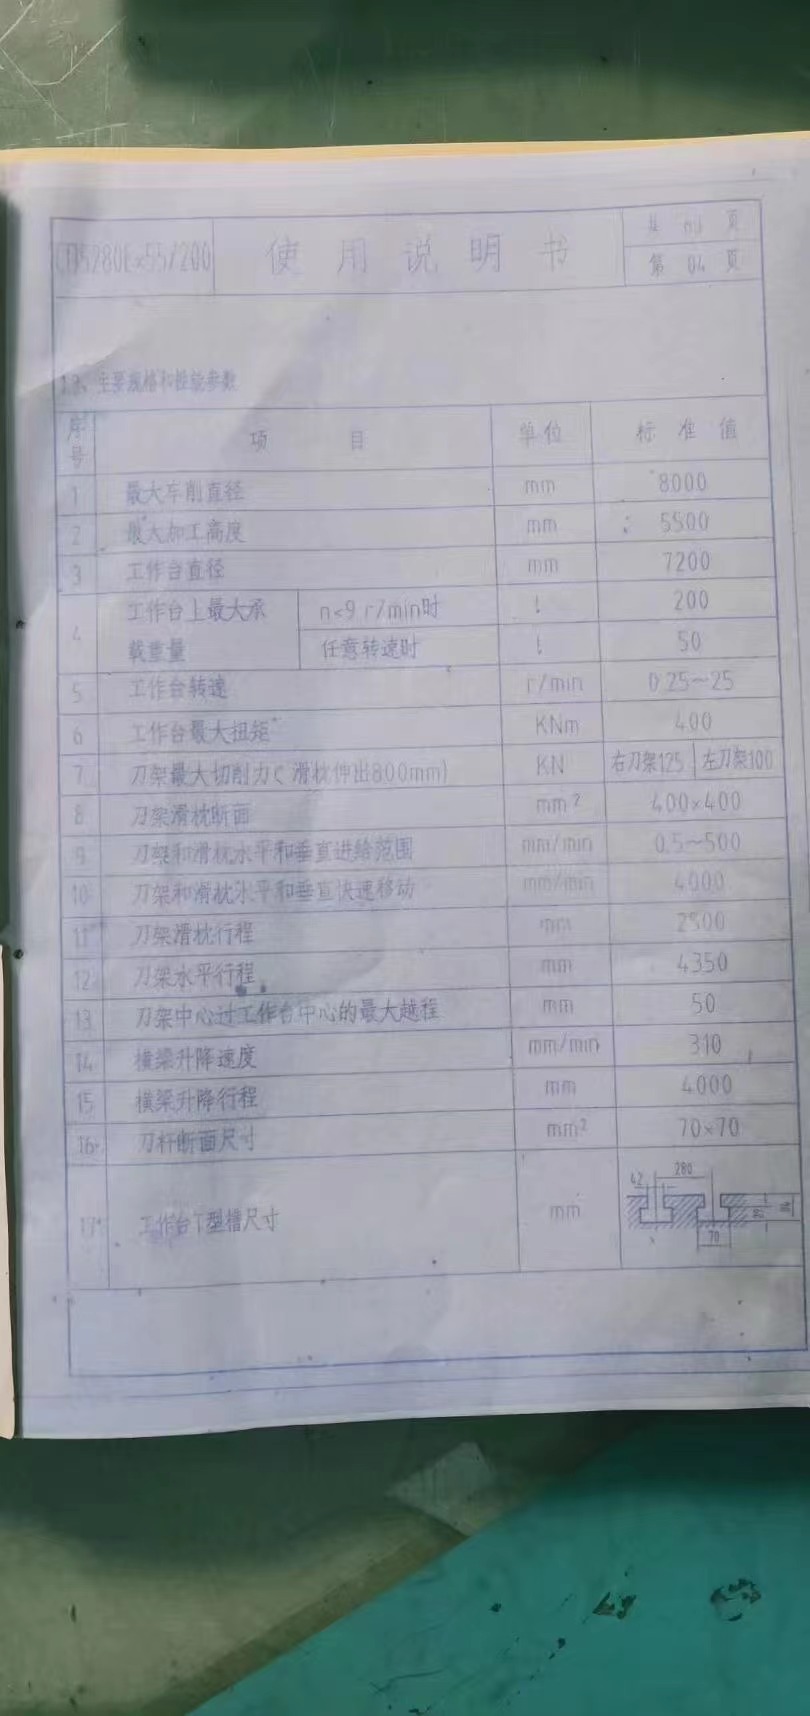 使用说明书
第 04 页
1.3、主要规格和性能参数
序号 项目 单位 标准值
1 最大车削直径 mm 8000
2 最大加工高度 mm 5500
3 工作台直径 mm 7200
4 工作台上最大承载重量 n<9 r/min时 t 200
任意转速时 t 50
5 工作台转速 r/min 0.25~25
6 工作台最大扭矩 KNm 400
7 刀架最大切削力(滑枕伸出800mm) KN 右刀架125 左刀架100
8 刀架滑枕断面 mm² 400×400
9 刀架和滑枕水平和垂直进给范围 mm/min 0.5~500
10 刀架和滑枕水平和垂直快速移动 mm/min 4000
11 刀架滑枕行程 mm 2500
12 刀架水平行程 mm 4350
13 刀架中心过工作台中心的最大越程 mm 50
14 横梁升降速度 mm/min 310
15 横梁升降行程 mm 4000
16 刀杆断面尺寸 mm² 70×70
17 工作台T型槽尺寸 mm
280
42
70